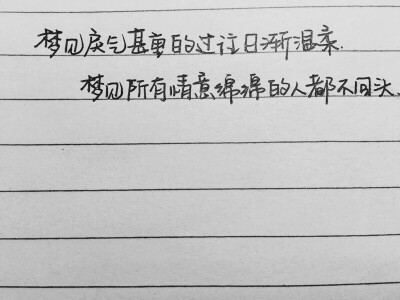 梦见戾气甚重的过往日渐温柔.
梦见所有情意绵绵的人都不回头.